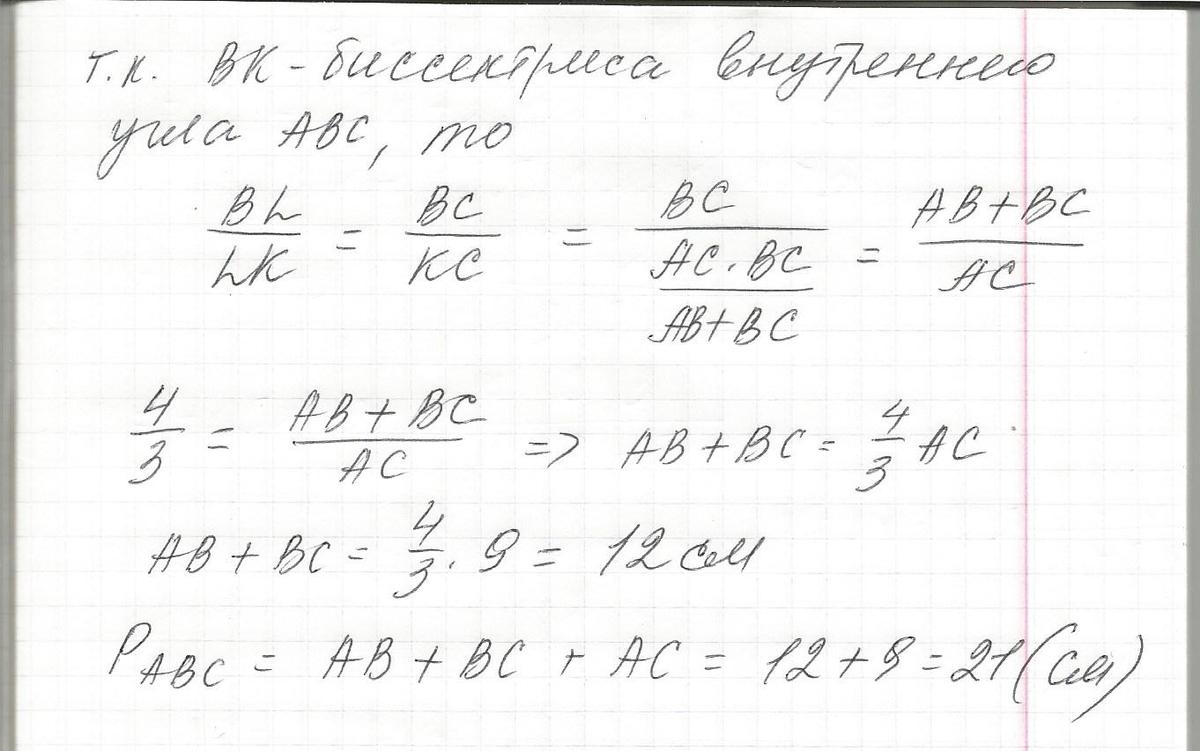 т.к. ВК - биссектриса внутреннего
угла АВС, то
BL/LK = BC/KC = BC/(AC·BC/(AB+BC)) = AB+BC/AC
4/3 = AB+BC/AC => AB+BC = 4/3 AC
AB+BC = 4/3 · 9 = 12 см
P ABC = AB + BC + AC = 12+9=21 (см)